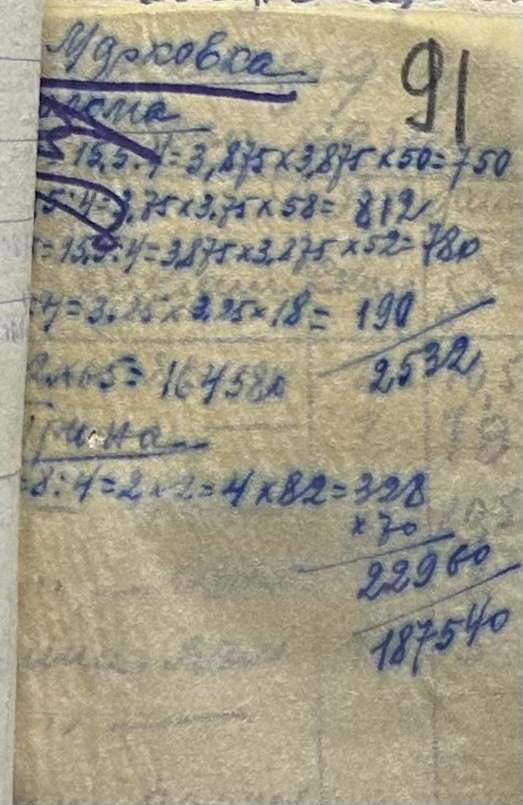 91
= 15,5:4=3,875×3,875×50=750
5:4=3,75×3,75×58= 812
= 15,5:4=3,875×3,875×52=780
:4=3.25×3,25×18= 190
2532
2×65= 164580
=8:4=2×2=4×82=328
×70
22960
187540